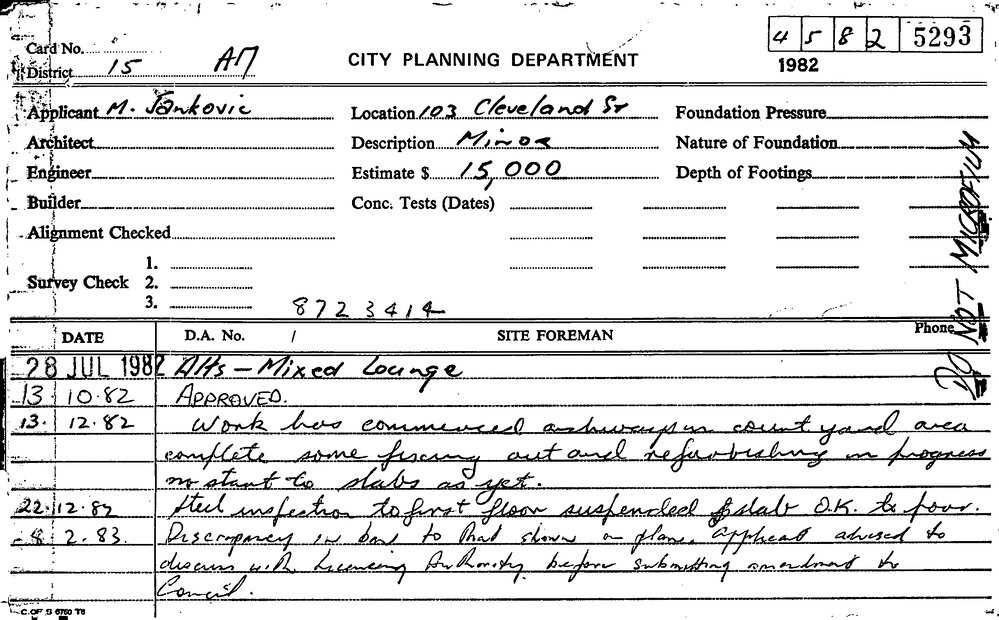 4 5 8 2 5293
Card No.
CITY PLANNING DEPARTMENT
District 15 AM
1982
Applicant M. Jankovic Location 103 Cleveland St Foundation Pressure
Architect Description Minor Nature of Foundation
Engineer Estimate $ 15,000 Depth of Footings
Builder Conc. Tests (Dates)
Alignment Checked
1.
Survey Check 2.
3.
8723414
DO NOT MICROFILM
DATE D.A. No. / SITE FOREMAN Phone
28 JUL 1982 Alts - Mixed Lounge
13 10.82 APPROVED.
13. 12.82 Work has commenced archways in courtyard area
complete some out and refurbishing in progress
no start to slabs as yet.
22. 12.82 Steel inspection to first floor suspended slab O.K. to pour.
8 2.83. Discrepancy in bar to that shown on plans. Applicant advised to
discuss with Licencing Authority before submitting amendment to
Council.
C. OF S 6760 T6